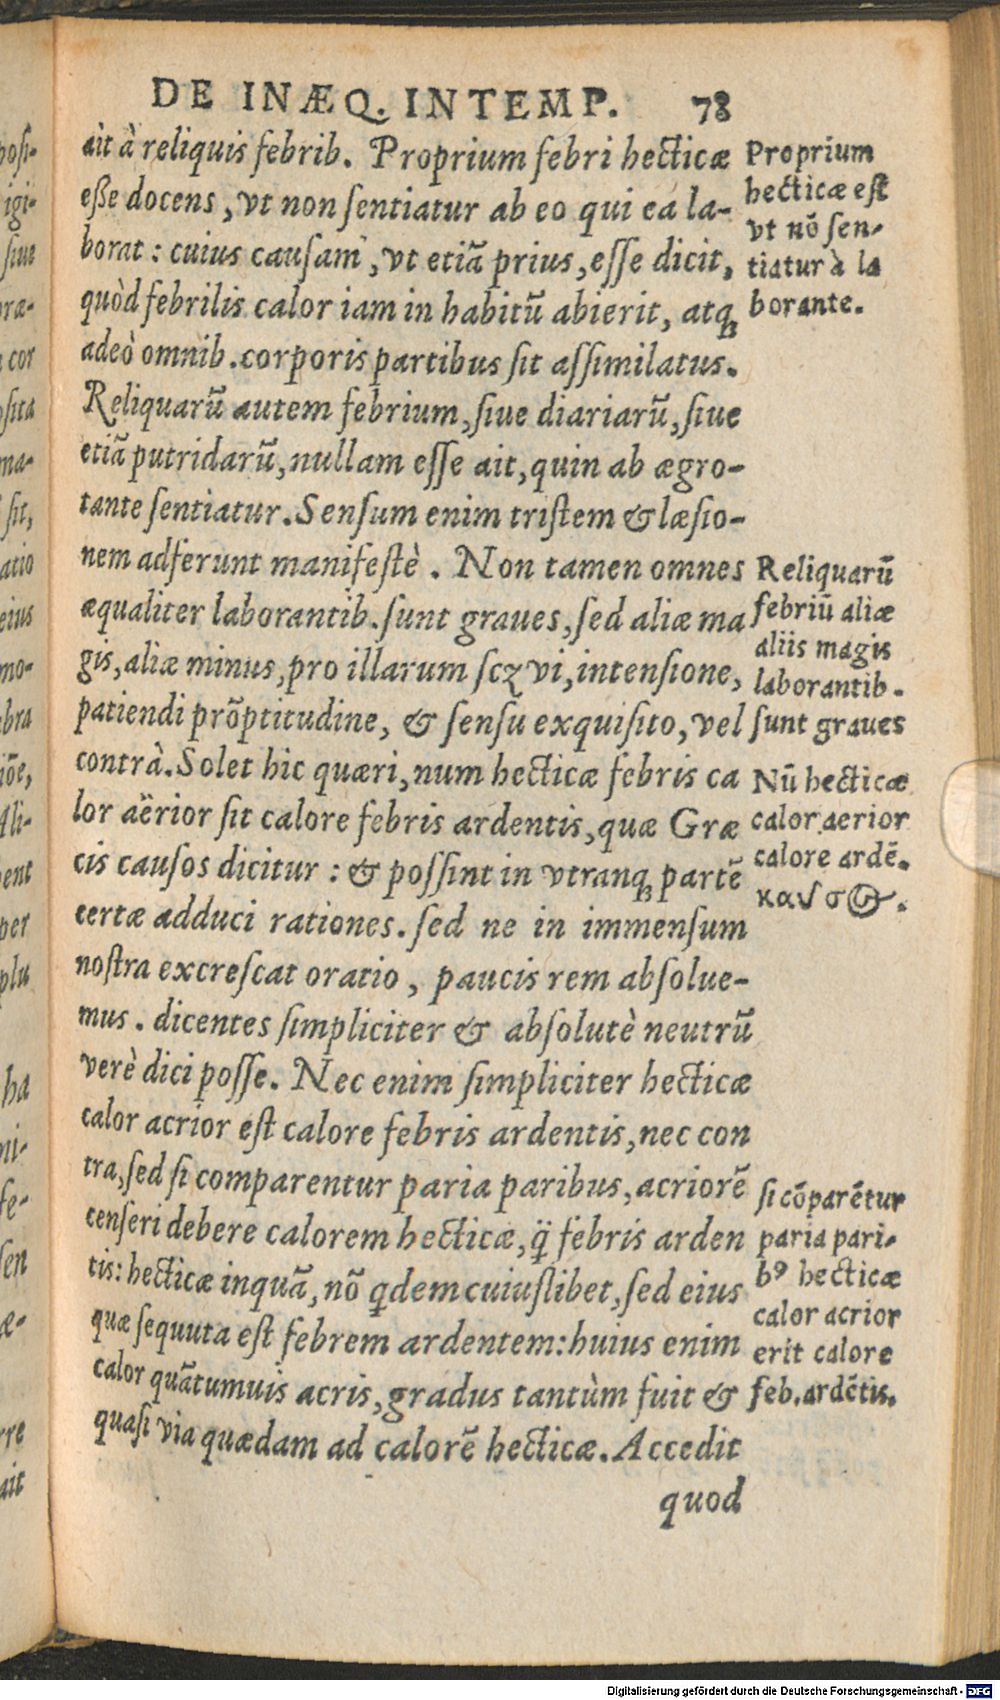 DE INÆQ. INTEMP. 78
ait à reliquis febrib. Proprium febri hecticæ
eſſe docens, vt non ſentiatur ab eo qui ea la-
borat: cuius cauſam, vt etiã prius, eſſe dicit,
quòd febrilis calor iam in habitũ abierit, atq;
adeò omnib. corporis partibus ſit aſſimilatus.
Reliquarũ autem febrium, ſiue diariarũ, ſiue
etiã putridarũ, nullam eſſe ait, quin ab ægro-
tante ſentiatur. Senſum enim triſtem & læſio-
nem adferunt manifeſtè. Non tamen omnes
æqualiter laborantib. ſunt graues, ſed aliæ ma
gis, aliæ minus, pro illarum ſcꝫ vi, intenſione,
patiendi prõptitudine, & ſenſu exquiſito, vel
contrà. Solet hic quæri, num hecticæ febris ca
lor aërior ſit calore febris ardentis, quæ Græ
cis cauſos dicitur: & poſſint in vtranq; partẽ
certæ adduci rationes. ſed ne in immenſum
noſtra excreſcat oratio, paucis rem abſolue-
mus. dicentes ſimpliciter & abſolutè neutrũ
verè dici poſſe. Nec enim ſimpliciter hecticæ
calor acrior eſt calore febris ardentis, nec con
tra, ſed ſi comparentur paria paribus, acriorẽ
cenſeri debere calorem hecticæ, q̃ febris arden
tis: hecticæ inquã, nõ qdem cuiuſlibet, ſed eius
quæ ſequuta eſt febrem ardentem: huius enim
calor quãtumuis acris, gradus tantùm fuit &
quaſi via quædam ad calorẽ hecticæ. Accedit
quod
Proprium
hecticæ eſt
vt nõ ſen-
tiatur à la
borante.
Reliquarũ
febriũ aliæ
aliis magis
laborantib.
ſunt graues
Nũ hecticæ
calor aerior
calore ardẽ.
καῦσος.
ſi cõparẽtur
paria pari-
bꝰ hecticæ
calor acrior
erit calore
feb. ardẽtis.
Digitalisierung gefördert durch die Deutsche Forschungsgemeinschaft - DFG